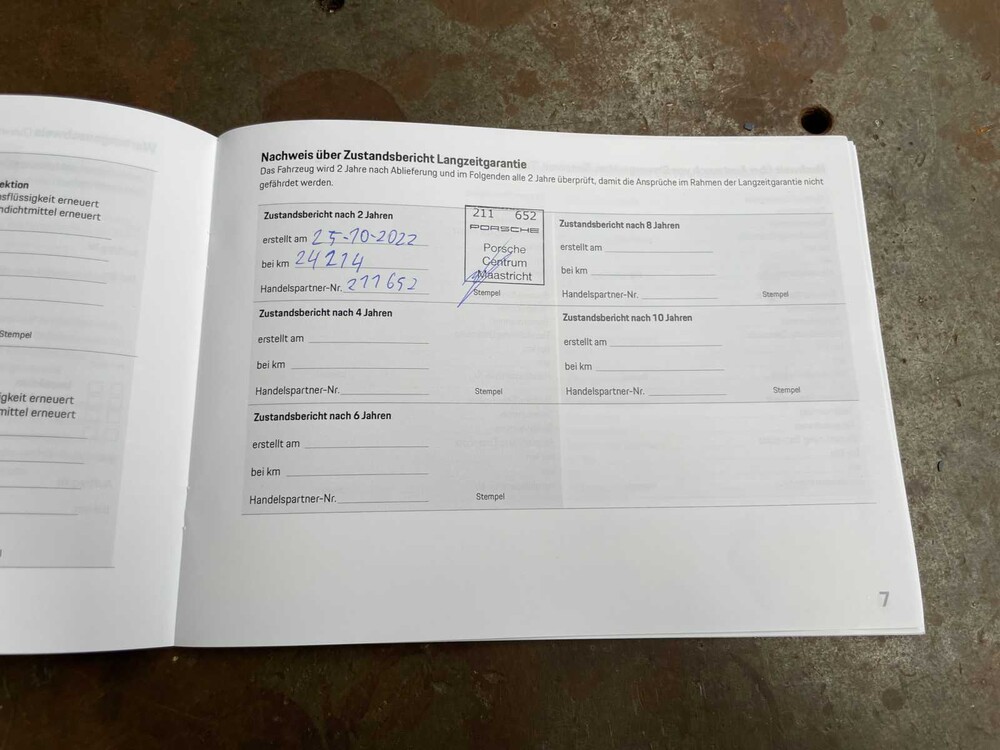 ektion
sflüssigkeit erneuert
ndichtmittel erneuert
Stempel
gkeit erneuert
mittel erneuert
Nachweis über Zustandsbericht Langzeitgarantie
Das Fahrzeug wird 2 Jahre nach Ablieferung und im Folgenden alle 2 Jahre überprüft, damit die Ansprüche im Rahmen der Langzeitgarantie nicht
gefährdet werden.
Zustandsbericht nach 2 Jahren
erstellt am 25-10-2022
bei km 24214
Handelspartner-Nr. 211652
211 652
PORSCHE
Porsche
Centrum
Maastricht
Stempel
Zustandsbericht nach 4 Jahren
erstellt am
bei km
Handelspartner-Nr.
Stempel
Zustandsbericht nach 6 Jahren
erstellt am
bei km
Handelspartner-Nr.
Stempel
Zustandsbericht nach 8 Jahren
erstellt am
bei km
Handelspartner-Nr.
Stempel
Zustandsbericht nach 10 Jahren
erstellt am
bei km
Handelspartner-Nr.
Stempel
7